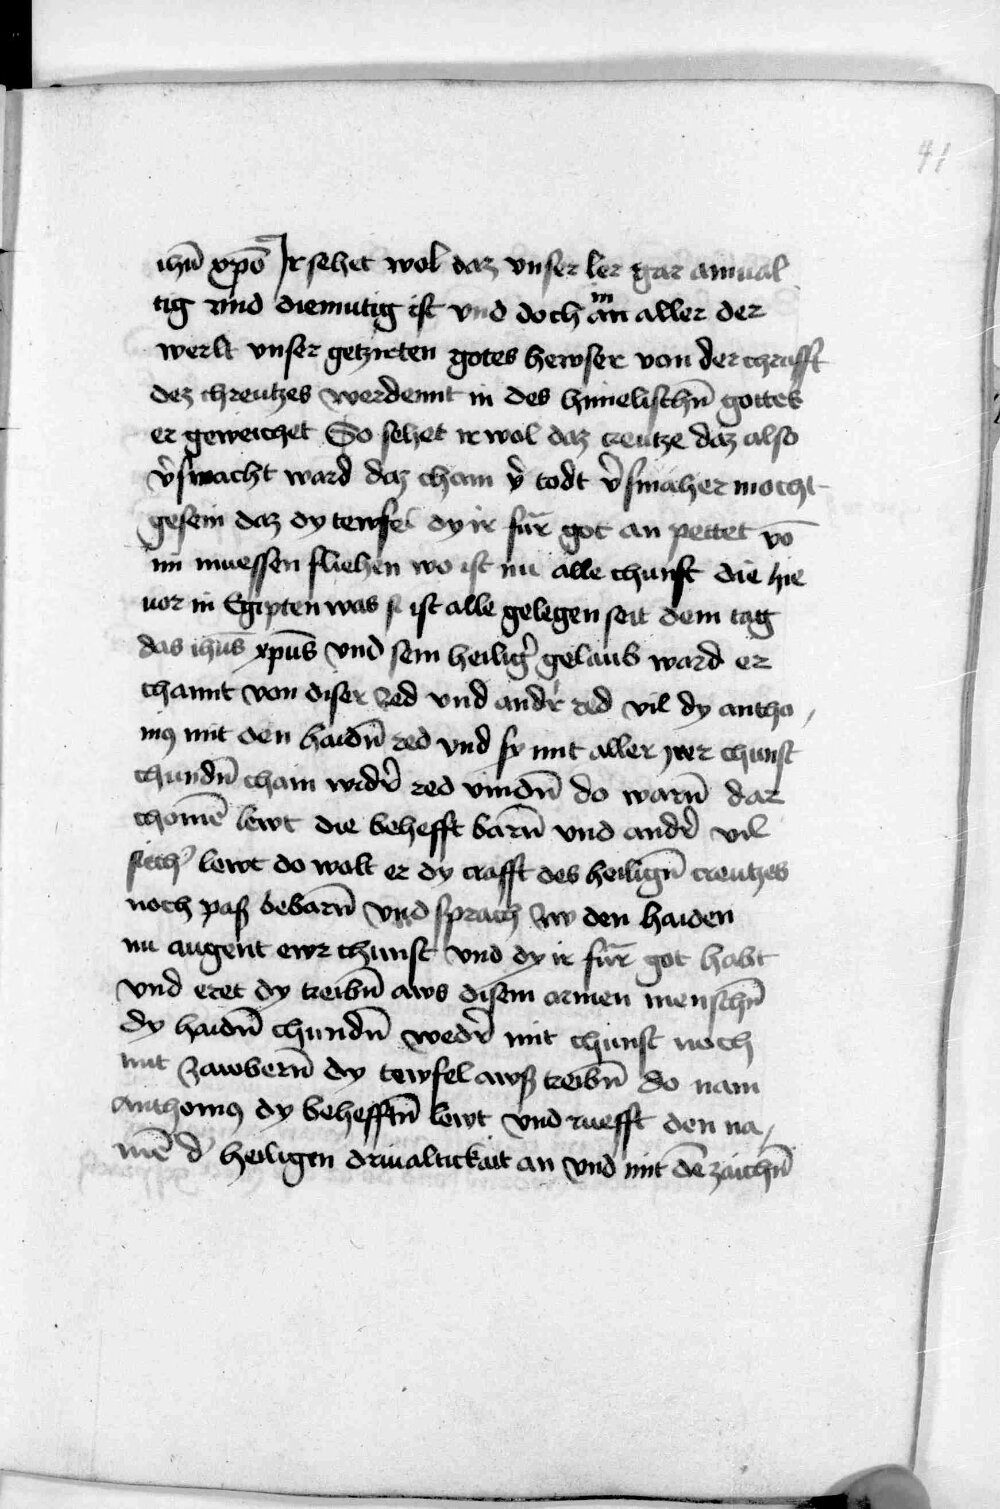 41
ihū xpō Jr sehet wol daz vnser ler gar ainual
tig vnd diemutig ist vnd doch in an aller der
werlt vnser getzirten gotes hewser von der chrafft
dez chreutzes werdennt in des himelischn̄ gottes
er geweichet So sehet ir wol daz creutze daz also
v̉smacht ward daz chain v̉ todt v̉smaher mocht
gesein daz dy tewfel dy ir fur got an pettet vō
im muessen fliehen wo ist nu alle chunst die hie
uor in Egipten was si ist alle gelegen seit dem tag
das ihūs xpūs vnd sein heilig̉ gelaub ward er
channt von diser red vnd andr̉ red vil dy antho
niꝯ mit den haidn̄ red vnd sy mit aller irer chunst
chundn̄ chain widr̉ red vindn̄ do warn̄ dar
chomē lewt die behefft warn̄ vnd andr̉ vil
siech̉ lewt do wolt er dy crafft des heilign̄ creutzes
noch paß bebarn̄ vnd sprach zw den haiden
nu augent ewr chunst vnd dy ir fur got habt
vnd eret dy treibn̄ aws disem armen menschn̄
dy haidn̄ chundn̄ wedr̉ mit chunst noch
mit zawbern̄ dy tewfel awß treibn̄ do nam
Anthoniꝯ dy behefftn̄ lewt vnd ruefft den na
mē d̉ heiligen driualtickait an vnd mit dē zaichn̄